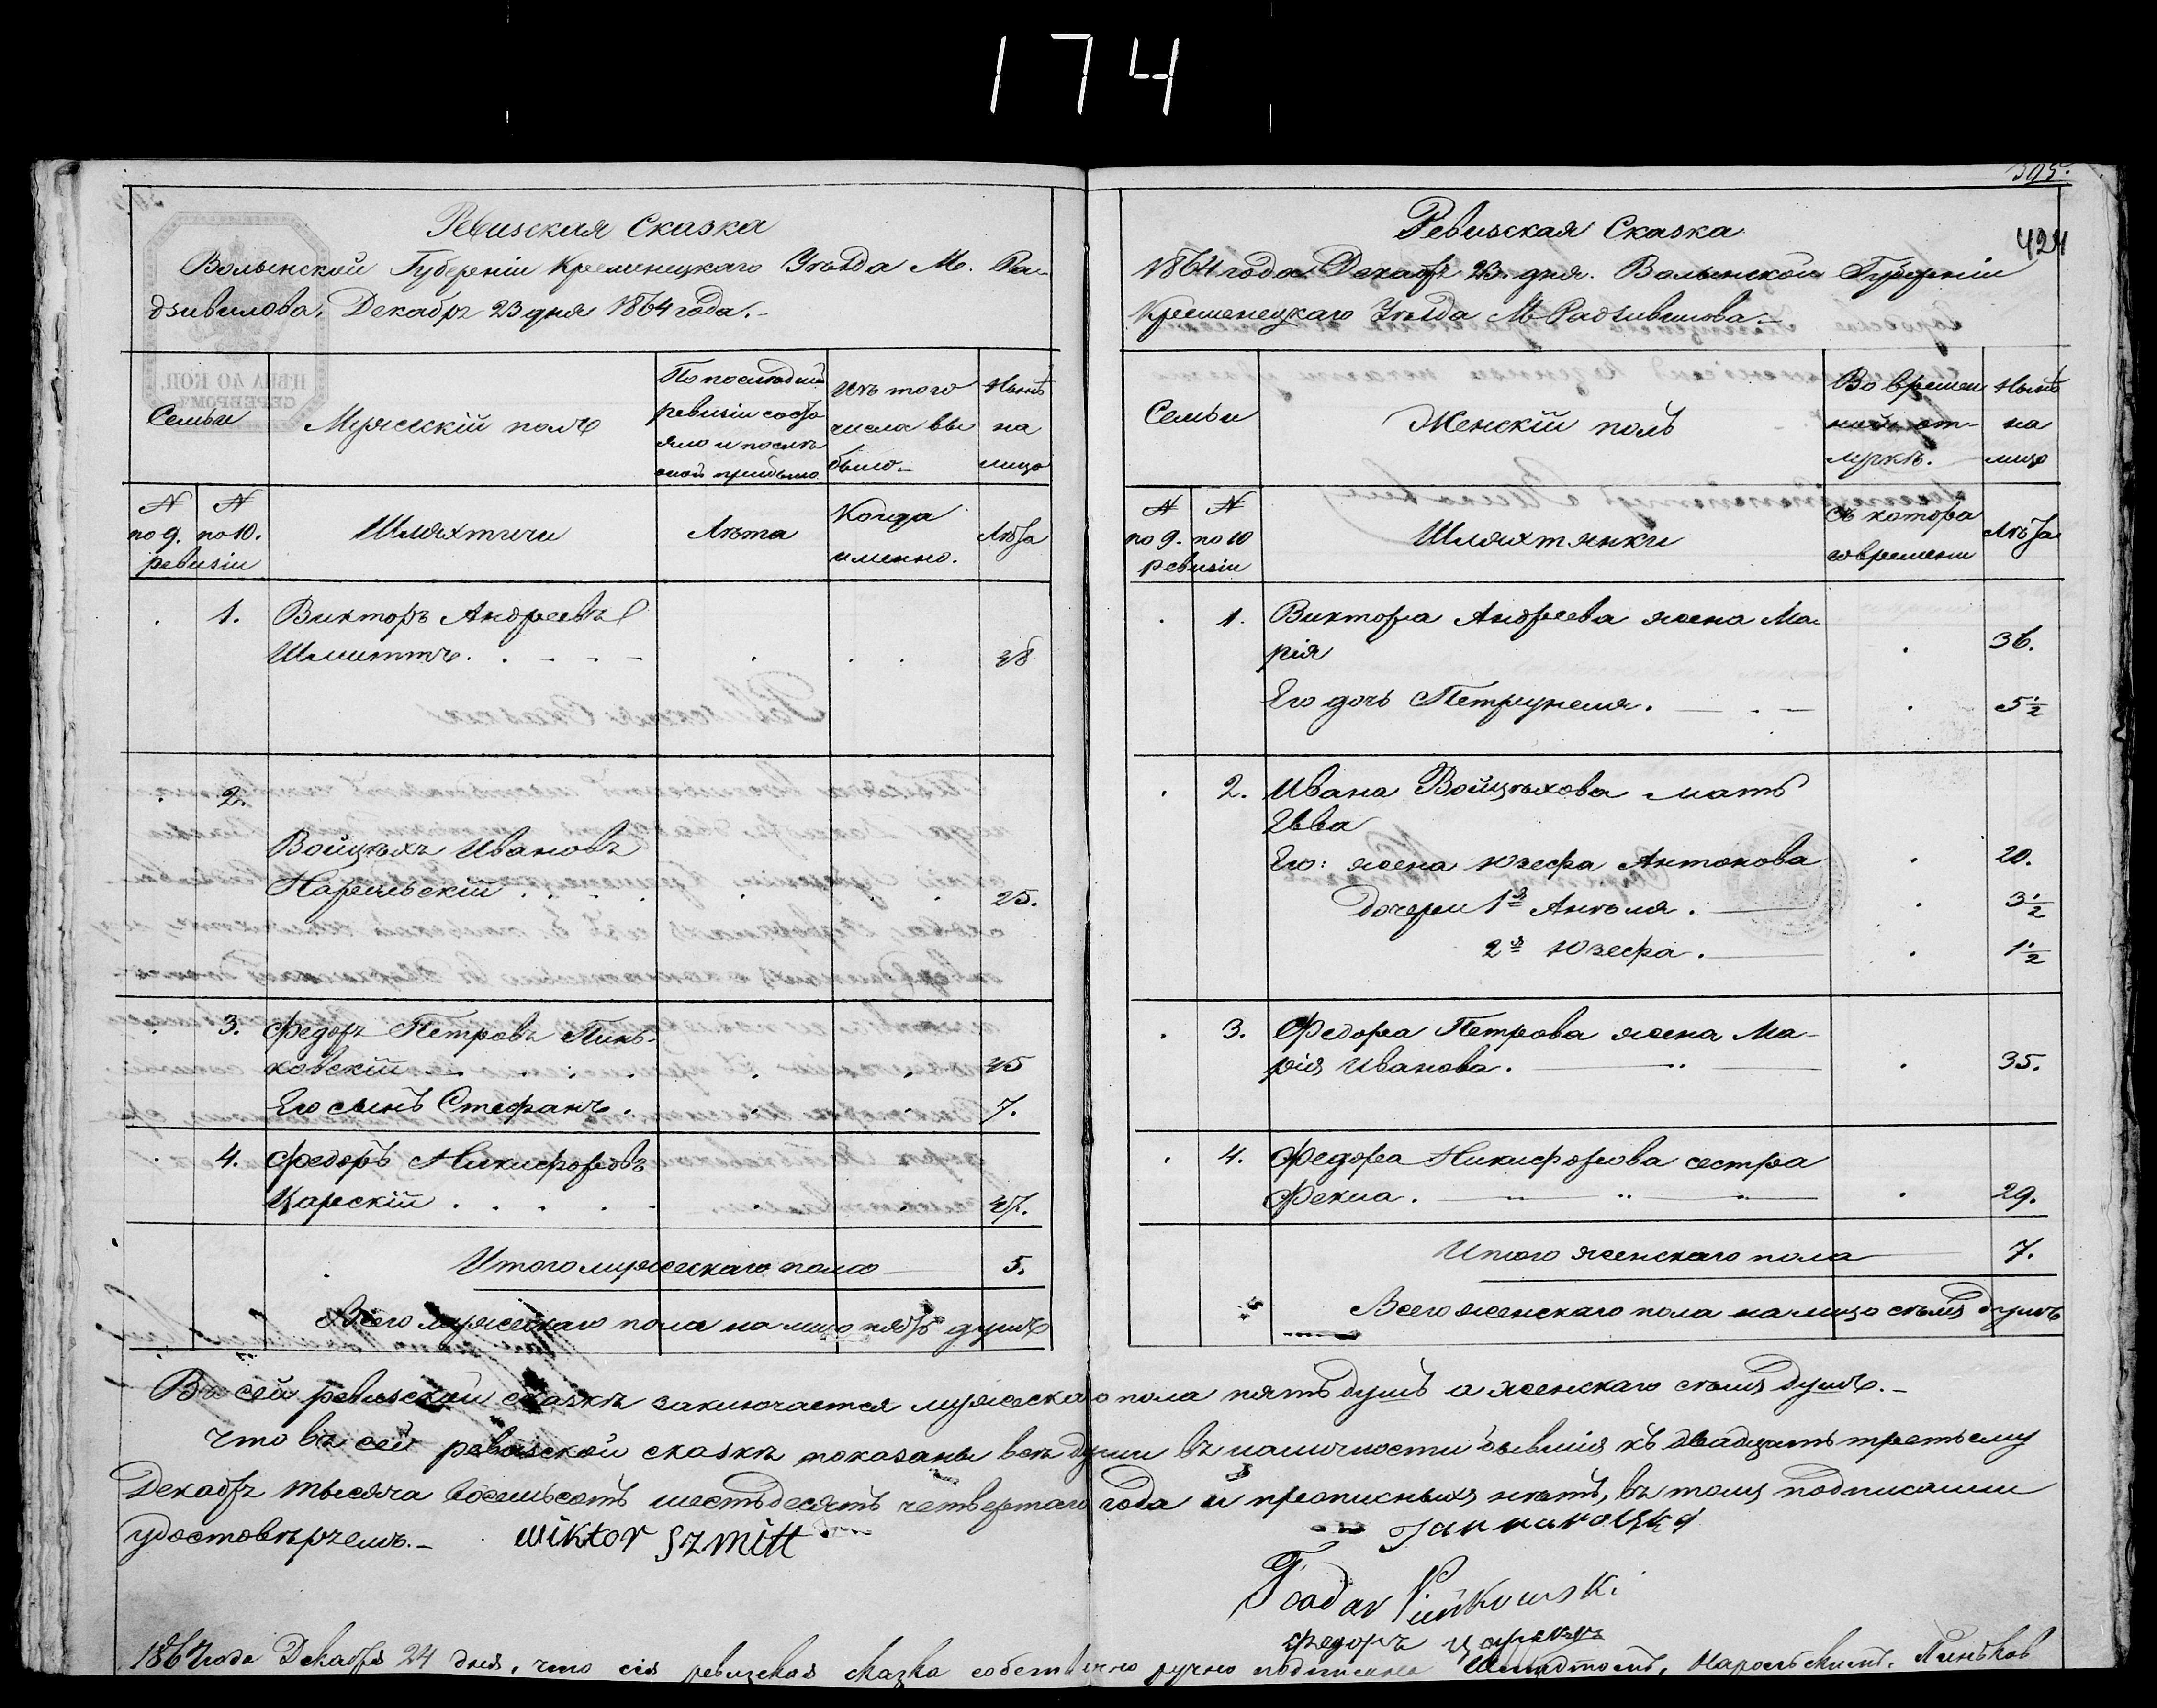 174
395.
424
Ревизская Сказка
Волынской Губерніи Кременецкаго Уѣзда М. Ра-
дзивилова, Декабря 23 дня 1864 года.-
ЦѢНА 40 КОП.
СЕРЕБРОМЪ
Семьи
Мужескій полъ
По послѣдней
ревизіи состо
яло и послѣ
оной прибыло
Изъ того
числа вы
было-
Нынѣ
на
лицо
№ №
по 9. по 10.
ревизіи
Шляхтичи
Лѣта
Когда
именно.
Лѣта
1. Викторъ Андреевъ
Шмиттъ. 48
2.
Войцѣхъ Ивановъ
Нарольскій 25.
3. Федоръ Петровъ Пинь-
ковскій 45
Его сынъ Стефанъ. 7.
4. Федоръ Никифоровъ
Царскій 47.
Итого мужескаго пола 5.
Всего мужескаго пола на лицо пять душъ
Ревизская Сказка
1864 года Декабря 23. дня. Волынской Губерніи
Кременецкаго Уѣзда М. Радзивилова.-
Семьи
Женскій полъ
Во времен
ной от-
лучкѣ.
Нынѣ
на
лицо
№ №
по 9. по 10
ревизіи
Шляхтянки
Съ котора
го времени
Лѣта
1. Виктора Андреева жена Ма-
рія 36.
Его дочь Петрунеля. 5½
2. Ивана Войцѣхова мать
Ева
Его: жена Юзефа Антонова 20.
дочери 1я Анѣля. 3½
2я Юзефа. 1½
3. Федора Петрова жена Ма-
рія Иванова. 35.
4. Федора Никифорова сестра
Фекла. 29.
Итого женскаго пола 7.
Всего женскаго пола на лицо семь душъ
Въ сей ревизской сказкѣ заключается мужескаго пола пять душъ а женскаго семь душъ.-
Что въ сей ревизской сказкѣ показаны всѣ души въ наличности бывшія къ двадцать третьему
Декабря тысяча восемьсотъ шестьдесятъ четвертаго года и прописныхъ нѣтъ, въ томъ подписами
удостовѣряемъ.- Wiktor Szmitt
Teodor Pińkowski
Федоръ Царскій
1864 года Декабря 24 дня, что сія ревизская сказка собственно ручно подписана Шмидтомъ, Нарольскимъ, Пиньков